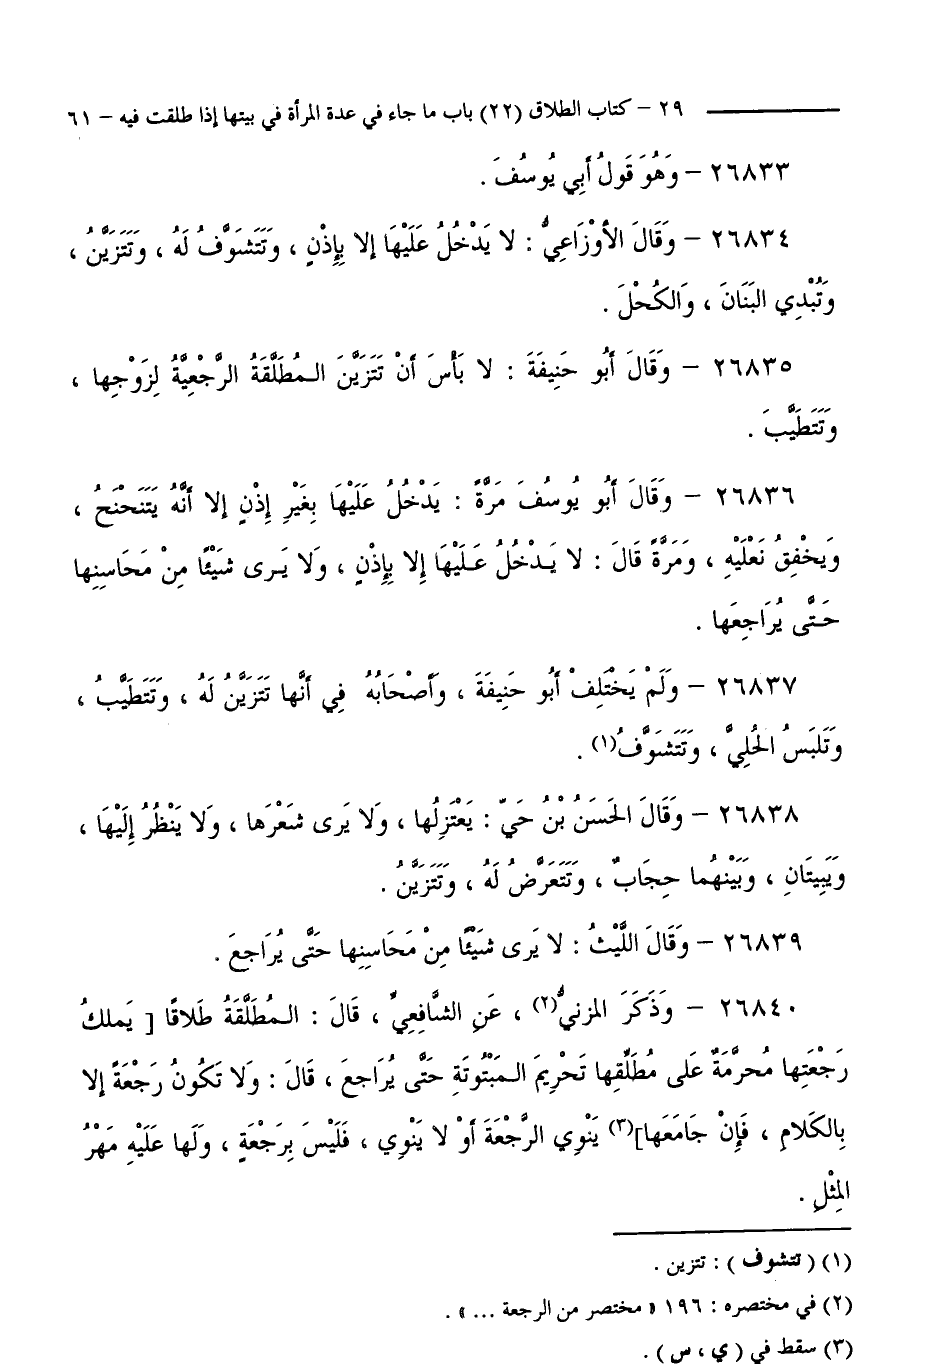 ٢٩ – كتاب الطلاق (٢٢) باب ما جاء في عدة المرأة في بيتها إذا طلقت فيه – ٦١
٢٦٨٣٣ – وَهُوَ قَولُ أَبِي يُوسُفَ .
٢٦٨٣٤ – وَقَالَ الأوْزَاعِيُّ : لا يَدْخُلُ عَلَيْهَا إلا بِإِذْنٍ ، وَتَتَشَوَّفُ لَهُ ، وَتَتَزَيَّنُ ،
وَتُبْدِي البَنَانَ ، وَالكُحْلَ .
٢٦٨٣٥ – وَقَالَ أَبُو حَنِيفَةَ : لا بَأْسَ أَنْ تَتَزَيَّنَ الـمُطَلَّقَةُ الرَّجْعِيَّةُ لِزَوْجِها ،
وَتَتَطَيَّبَ .
٢٦٨٣٦ – وَقَالَ أَبُو يُوسُفَ مَرَّةً : يَدْخُلُ عَلَيْهَا بِغَيْرِ إِذْنٍ إلا أَنَّهُ يَتَنَحْنَحُ ،
وَيَخْفِقُ نَعْلَيْهِ ، وَمَرَّةً قَالَ : لا يَـدْخُلُ عَـلَيْهَا إِلا بِإِذْنٍ ، وَلا يَـرى شَيْئًا مِنْ مَحَاسِنِها
حَـتَّى يُرَاجِعَها .
٢٦٨٣٧ – وَلَمْ يَخْتَلِفْ أَبُو حَنِيفَةَ ، وَأَصْحَابُهُ فِي أَنَّها تَتَزَيَّنُ لَهُ ، وَتَتَطَيَّبُ ،
وَتَلْبَسُ الحُلِيَّ ، وَتَتَشَوَّفُ(١) .
٢٦٨٣٨ – وَقَالَ الحَسَنُ بْنُ حَيّ : يَعْتَزِلُها ، وَلا يَرى شَعْرَها ، وَلا يَنْظُرُ إِلَيْهَا ،
وَيَبِيتَانِ ، وَبَيْنَهُما حِجَابٌ ، وَتَتَعَرَّضُ لَهُ ، وَتَتَزَيَّنُ .
٢٦٨٣٩ – وَقَالَ اللَّيْثُ : لا يَرى شَيْئًا مِنْ مَحَاسِنِها حَتَّى يُرَاجعَ .
٢٦٨٤٠ – وَذَكَرَ المزنيُّ(٢) ، عَنِ الشَّافِعِيِّ ، قَالَ : الـمُطَلَّقَةُ طَلاقًا [ يَملكُ
رَجْعَتِها مُحرَّمَةٌ عَلى مُطَلِّقِها تَحْرِيمَ الـمَبْتُوتَةِ حَتَّى يُرَاجعَ ، قَالَ : وَلا تَكُونُ رَجْعَةً إلا
بِالكَلامِ ، فَإِنْ جَامَعَها](٣) يَنْوِي الرَّجْعَةَ أَوْ لا يَنْوِي ، فَلَيْسَ بِرَجْعَةٍ ، وَلَها عَلَيْهِ مَهْرُ
المِثْلِ .
(١) ( تتشوف ) : تتزين .
(٢) في مختصره : ١٩٦ « مختصر من الرجعة ... » .
(٣) سقط في ( ي ، س ) .